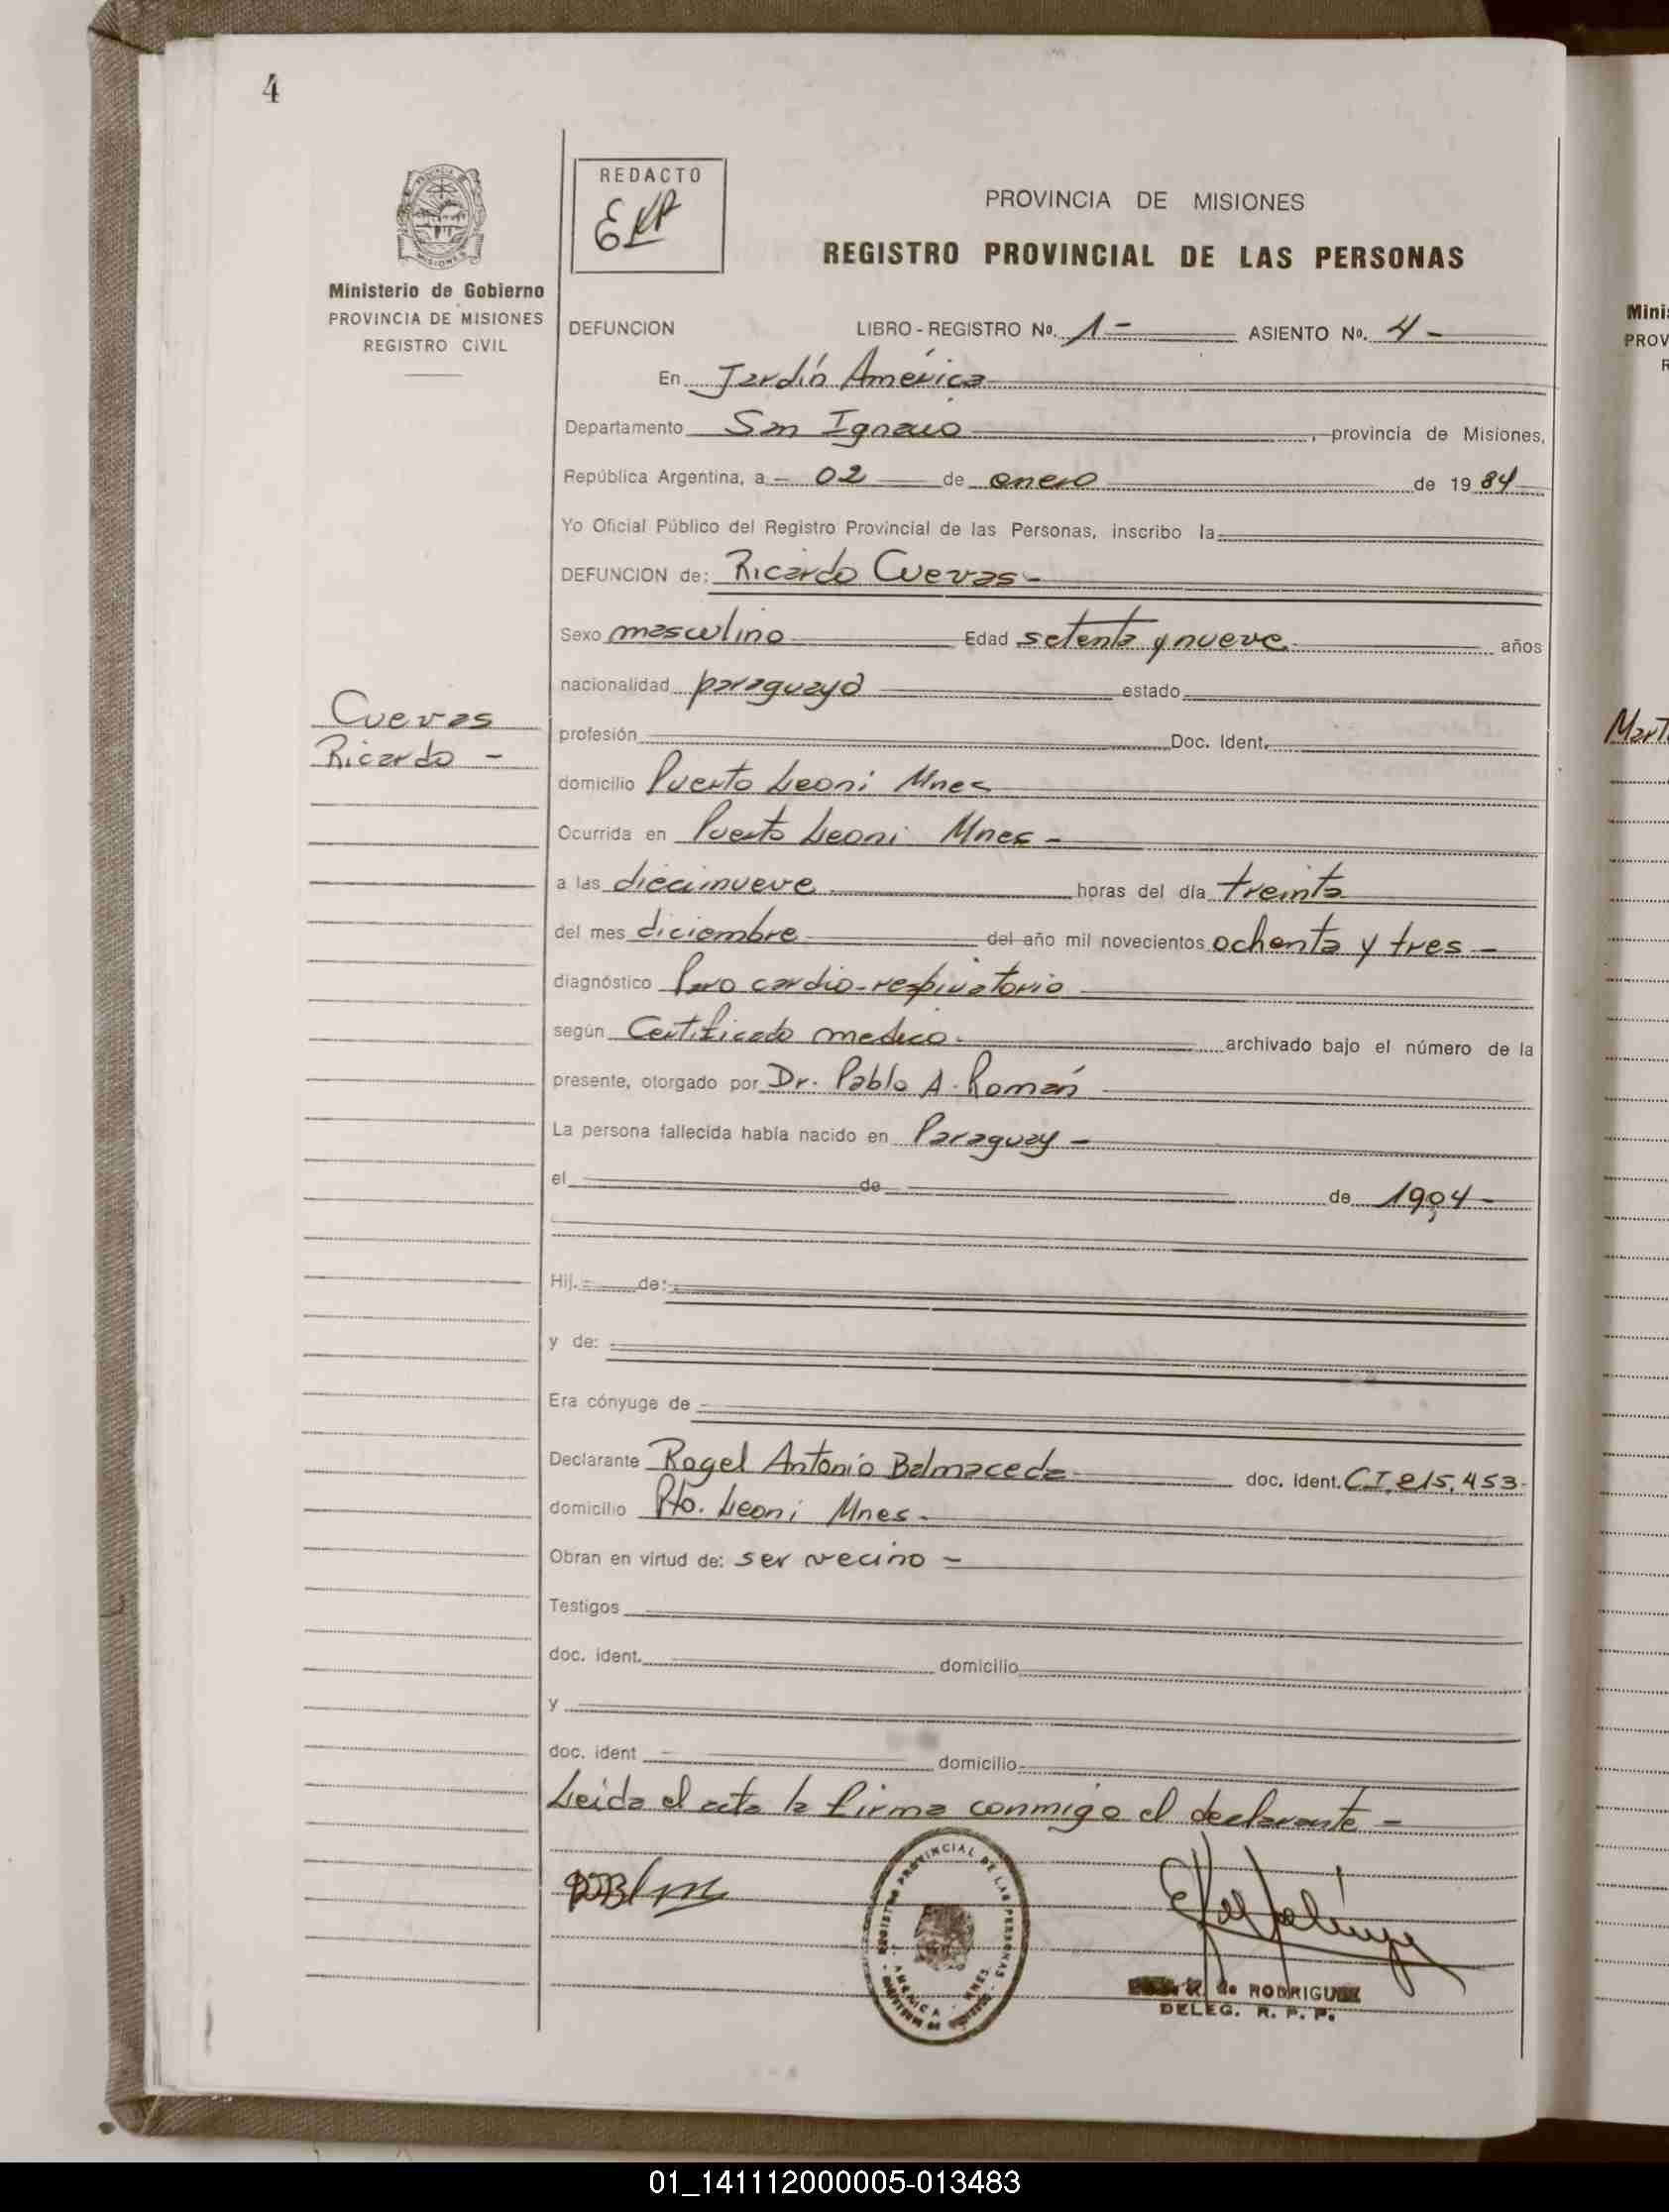 4
REDACTO
PROVINCIA DE MISIONES
REGISTRO PROVINCIAL DE LAS PERSONAS
Ministerio de Gobierno
PROVINCIA DE MISIONES
REGISTRO CIVIL
DEFUNCION LIBRO - REGISTRO Nº. 1 - ASIENTO Nº. 4 -
En Jardín América
Departamento San Ignacio, provincia de Misiones,
República Argentina, a - 02 de enero de 1984
Yo Oficial Público del Registro Provincial de las Personas, inscribo la
DEFUNCION de: Ricardo Cuevas -
Sexo masculino Edad setenta y nueve años
nacionalidad paraguaya estado
Cuevas
Ricardo -
profesión Doc. Ident.
domicilio Puerto Leoni Mnes
Ocurrida en Puerto Leoni Mnes -
a las diecinueve horas del día treinta
del mes diciembre del año mil novecientos ochenta y tres -
diagnóstico Paro cardio-respiratorio
según Certificado medico archivado bajo el número de la
presente, otorgado por Dr. Pablo A. Román
La persona fallecida había nacido en Paraguay -
el de de 1904 -
Hij. de:
y de:
Era cónyuge de
Declarante Rogel Antonio Balmaceda doc. ident. CI.
domicilio Pto. Leoni Mnes -
Obran en virtud de: ser vecino -
Testigos
doc. ident. domicilio
y
doc. ident domicilio
Leida el acta la firma conmigo el declarante -
REGISTRO PROVINCIAL DE LAS PERSONAS
AMERICA - MNES.
de RODRIGUEZ
DELEG. R. P. P.
Mini
PROV
R
Mart
01_141112000005-013483